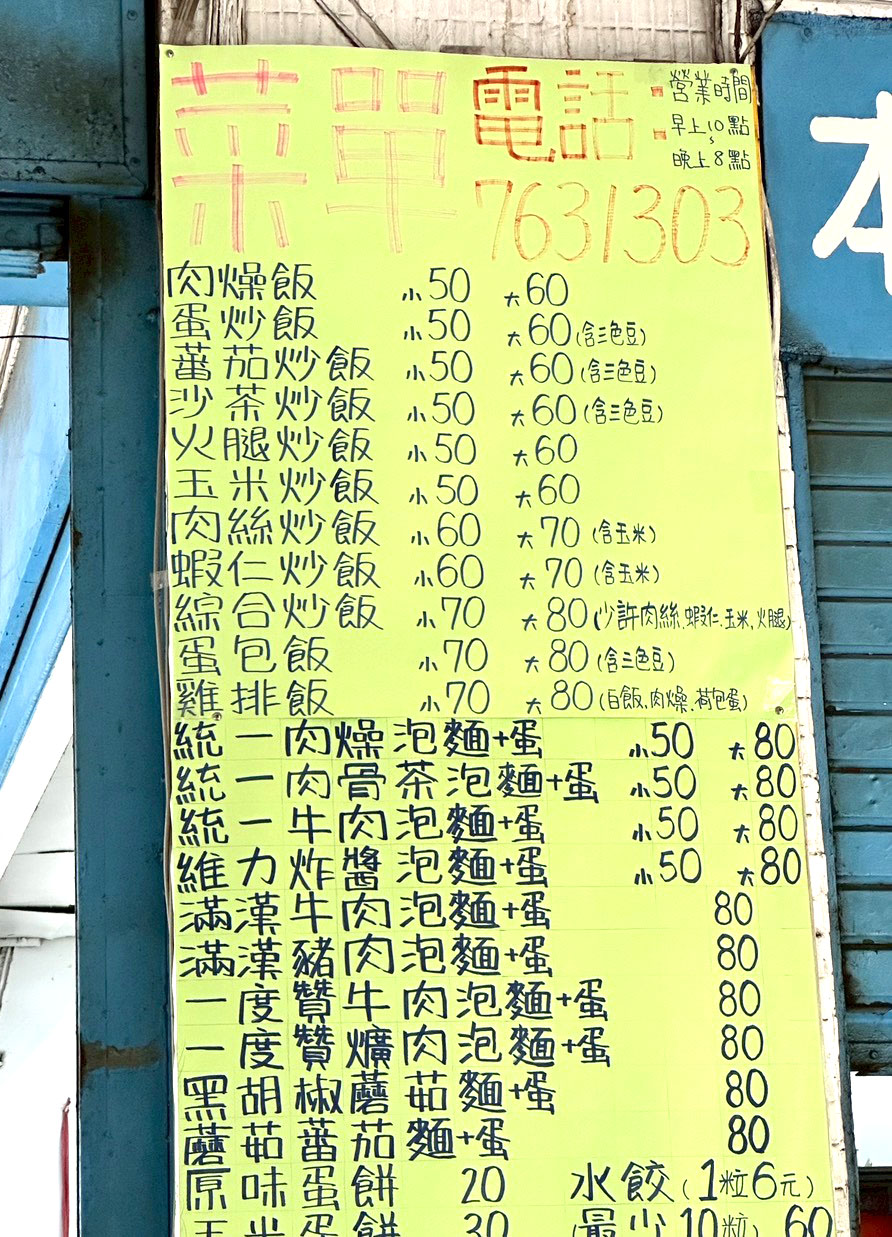 菜單 電話:
營業時間
早上10點
~
晚上8點
7631303
本
肉燥飯 小50 大60
蛋炒飯 小50 大60(含三色豆)
蕃茄炒飯 小50 大60(含三色豆)
沙茶炒飯 小50 大60(含三色豆)
火腿炒飯 小50 大60
玉米炒飯 小50 大60
肉絲炒飯 小60 大70(含玉米)
蝦仁炒飯 小60 大70(含玉米)
綜合炒飯 小70 大80(少許肉絲.蝦仁.玉米,火腿)
蛋包飯 小70 大80(含三色豆)
雞排飯 小70 大80(白飯.肉燥.荷包蛋)
統一肉燥泡麵+蛋 小50 大80
統一肉骨茶泡麵+蛋 小50 大80
統一牛肉泡麵+蛋 小50 大80
維力炸醬泡麵+蛋 小50 大80
滿漢牛肉泡麵+蛋 80
滿漢豬肉泡麵+蛋 80
一度贊牛肉泡麵+蛋 80
一度贊爌肉泡麵+蛋 80
黑胡椒蘑菇麵+蛋 80
蘑菇蕃茄麵+蛋 80
原味蛋餅 20 水餃(1粒6元)
玉米蛋餅 30 (最少10粒) 60